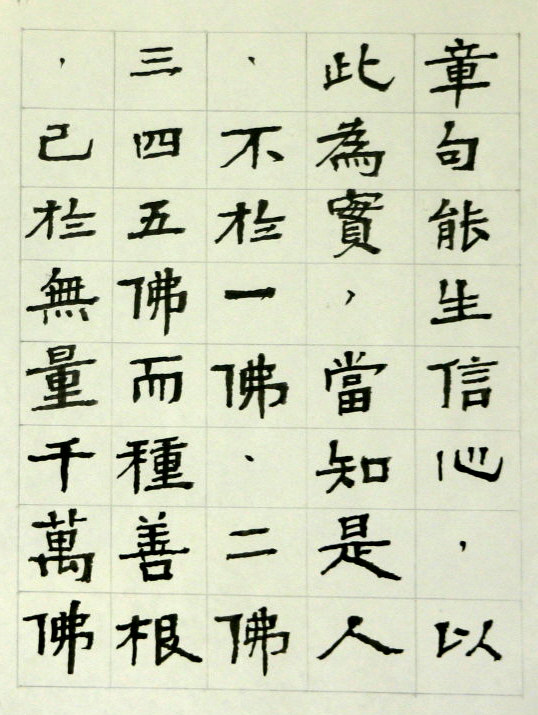 章句能生信心，以
此為實，當知是人
、不於一佛、二佛
三四五佛而種善根
，己於無量千萬佛